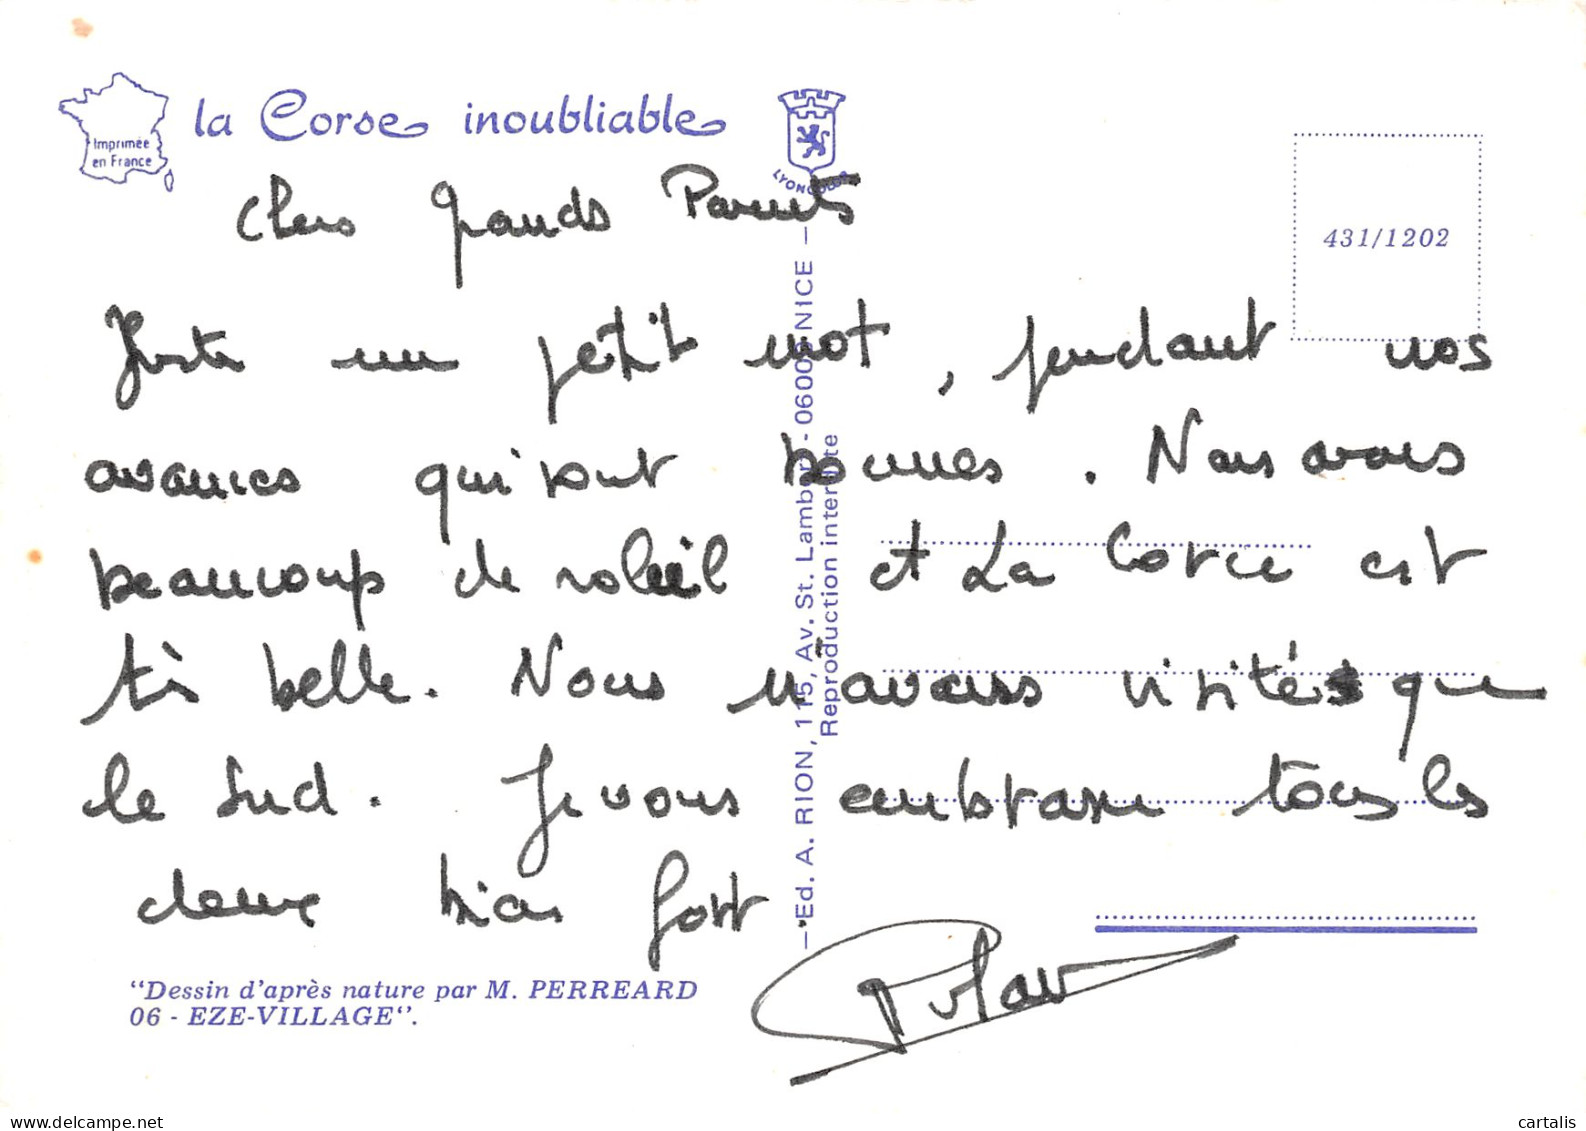 la Corse inoubliable
Imprimée
en France
LYONCOLOR
431/1202
Chers grands Parents
Juste un petit mot, pendant nos
vacances qui sont bonnes. Nous avons
beaucoup de soleil et La Corse est
très belle. Nous n'avons visités que
le Sud. Je vous embrasse tous les
deux bien fort
Ed. A. RION, 115, Av. St. Lambert - 06000 NICE
Reproduction interdite
"Dessin d'après nature par M. PERREARD
06 - EZE-VILLAGE".
cartalis
delcampe.net